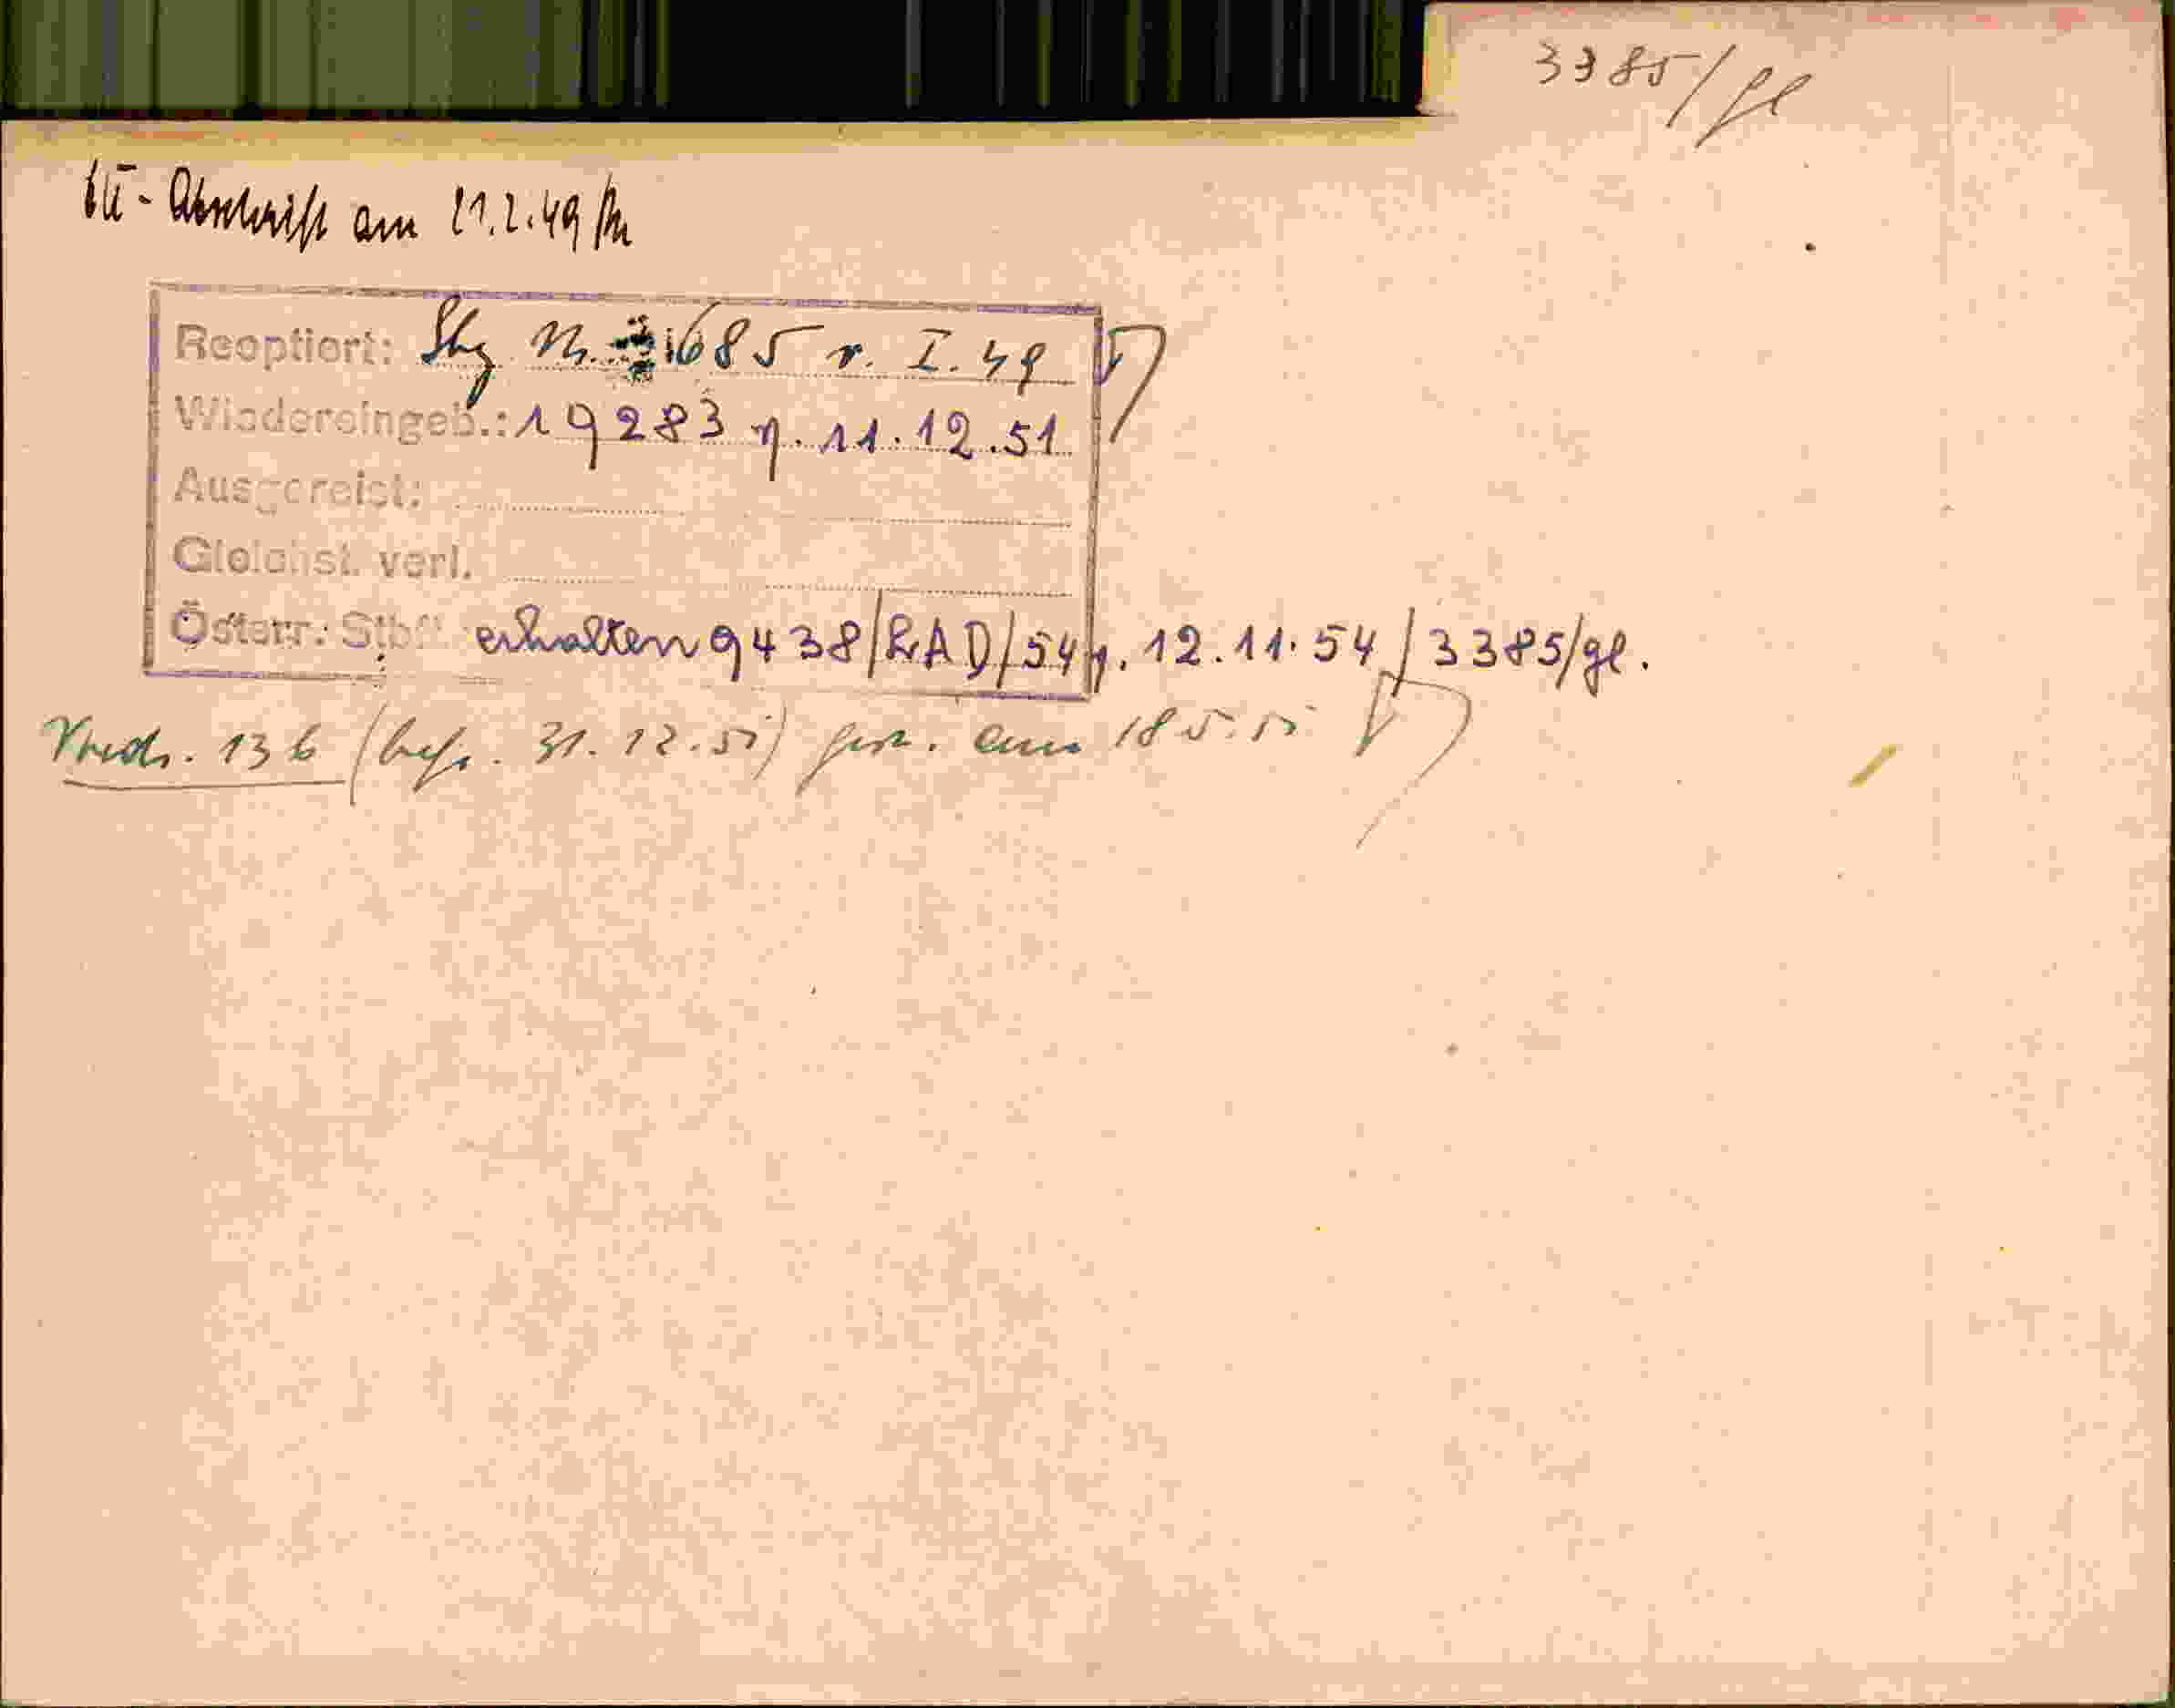 3385/gl
- Abschrift am 21.2.49
Reoptiert: Nr. 1685 v. I. 49
Wiedereingeb.: 19283 v. 11.12.51
Ausgereist:
Gleichst. verl.
Österr. Stb. erhalten 9438/RAD/54 v. 12.11.54/3385/gl.
136 (bef. 31.12.55) am 18.5.55